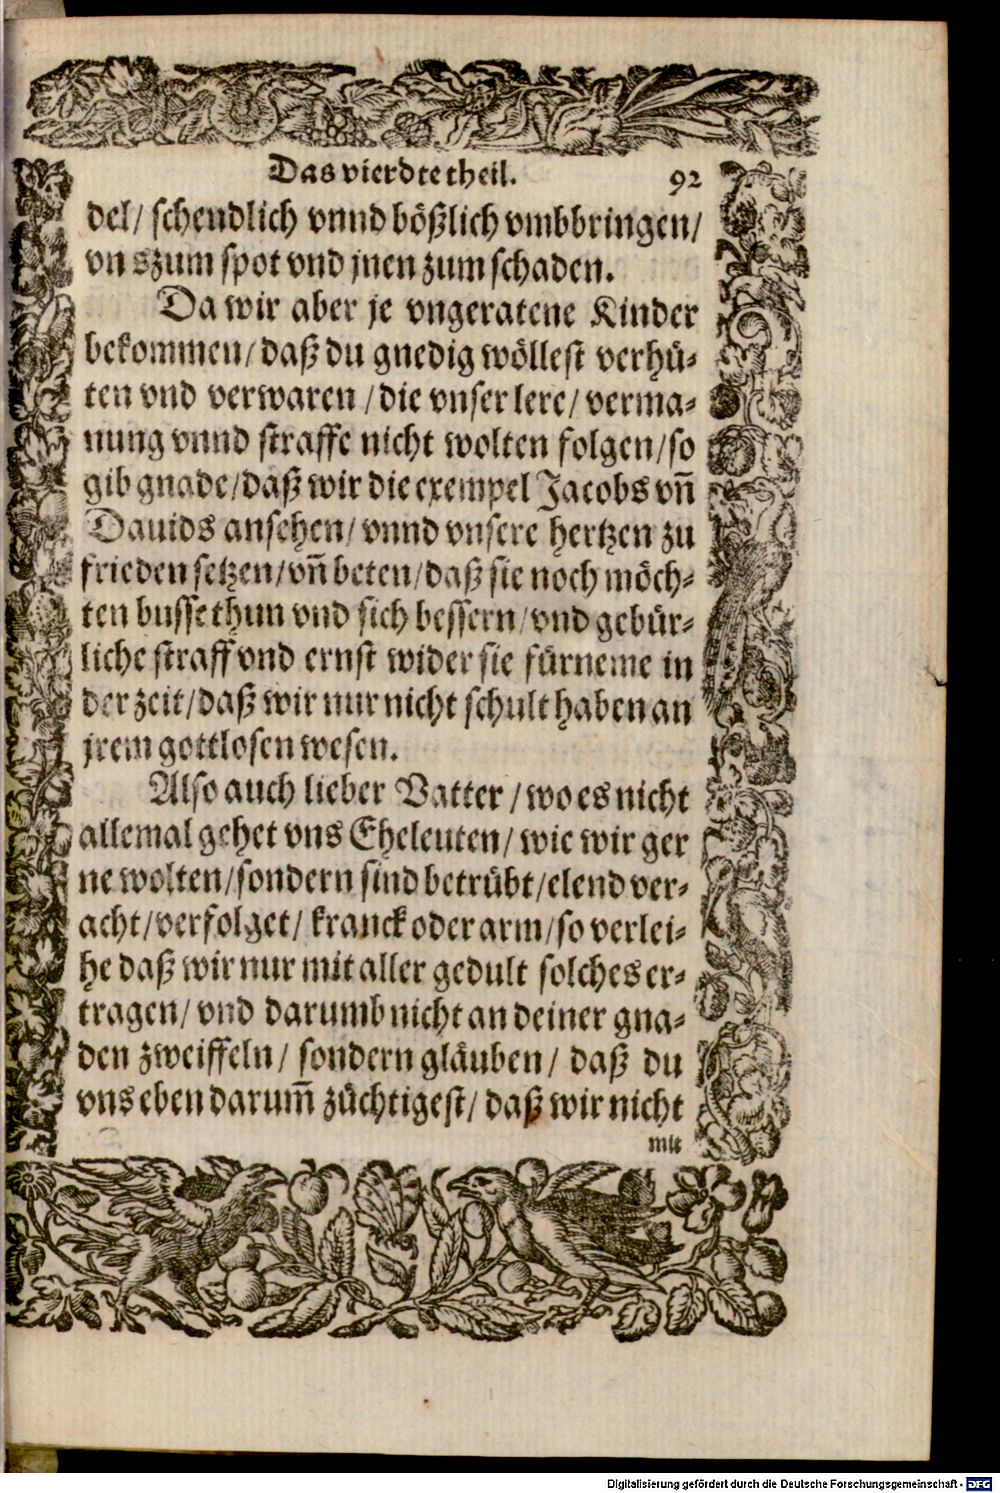 Das vierdte theil. 92
del/ schendlich vnnd bößlich vmbbringen/
vns zum spot vnd jnen zum schaden.
Da wir aber je vngeratene Kinder
bekommen/ daß du gnedig wöllest verhü-
ten vnd verwaren / die vnser lere/ verma-
nung vnnd straffe nicht wolten folgen/ so
gib gnade/ daß wir die exempel Jacobs vñ
Dauids ansehen/ vnnd vnsere hertzen zu
frieden setzen/ vñ beten/ daß sie noch möch-
ten busse thun vnd sich bessern/ vnd gebür-
liche straff vnd ernst wider sie fürneme in
der zeit/ daß wir nur nicht schult haben an
jrem gottlosen wesen.
Also auch lieber Vatter / wo es nicht
allemal gehet vns Eheleuten/ wie wir ger
ne wolten/ sondern sind betrübt/ elend ver-
acht/ verfolget/ kranck oder arm/ so verlei-
he daß wir nur mit aller gedult solches er-
tragen/ vnd darumb nicht an deiner gna-
den zweiffeln/ sondern gläuben/ daß du
vns eben darum̃ züchtigest/ daß wir nicht
mit
Digitalisierung gefördert durch die Deutsche Forschungsgemeinschaft - DFG